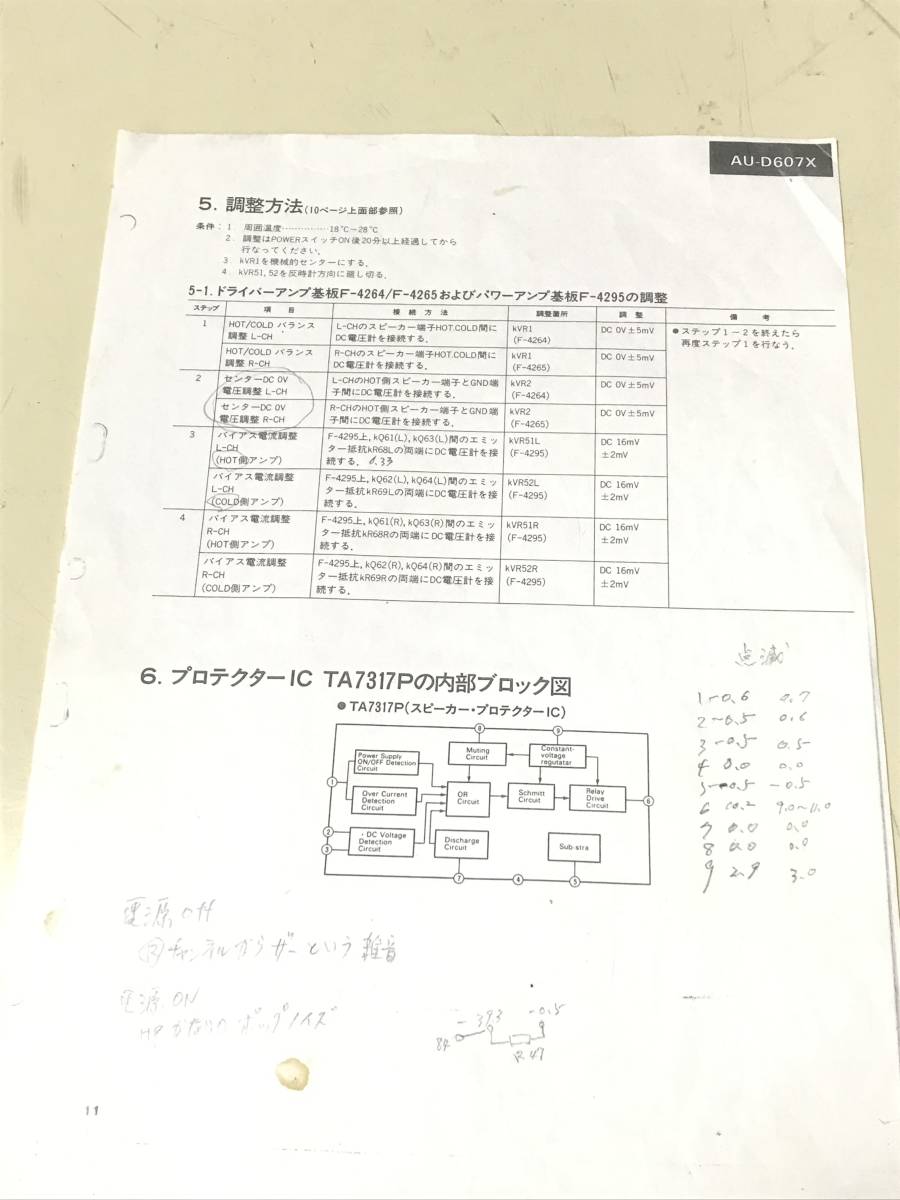 AU-D607X
5. 調整方法(10ページ上面部参照)
条件：1. 周囲温度……………18℃〜28℃
2. 調整はPOWERスイッチON後20分以上経過してから
行なってください.
3 kVR1を機械的センターにする.
4. kVR51, 52を反時計方向に廻し切る.
5-1. ドライバーアンプ基板F-4264/F-4265およびパワーアンプ基板F-4295の調整
ステップ 項目 接続方法 調整箇所 調整 備考
1 HOT/COLD バランス L-CHのスピーカー端子HOT.COLD間に kVR1 DC 0V±5mV ●ステップ1－2を終えたら
調整 L-CH DC電圧計を接続する. (F-4264) 再度ステップ1を行なう.
HOT/COLD バランス R-CHのスピーカー端子HOT.COLD間に kVR1 DC 0V±5mV
調整 R-CH DC電圧計を接続する. (F-4265)
2 センターDC 0V L-CHのHOT側スピーカー端子とGND端 kVR2 DC 0V±5mV
電圧調整 L-CH 子間にDC電圧計を接続する. (F-4264)
センターDC 0V R-CHのHOT側スピーカー端子とGND端 kVR2 DC 0V±5mV
電圧調整 R-CH 子間にDC電圧計を接続する. (F-4265)
3 バイアス電流調整 F-4295上, kQ61(L), kQ63(L)間のエミッ kVR51L DC 16mV
L-CH ター抵抗kR68Lの両端にDC電圧計を接 (F-4295) ±2mV
(HOT側アンプ) 続する. 0.33
バイアス電流調整 F-4295上, kQ62(L), kQ64(L)間のエミッ kVR52L DC 16mV
L-CH ター抵抗kR69Lの両端にDC電圧計を接 (F-4295) ±2mV
(COLD側アンプ) 続する.
4 バイアス電流調整 F-4295上, kQ61(R), kQ63(R)間のエミッ kVR51R DC 16mV
R-CH ター抵抗kR68Rの両端にDC電圧計を接 (F-4295) ±2mV
(HOT側アンプ) 続する.
バイアス電流調整 F-4295上, kQ62(R), kQ64(R)間のエミッ kVR52R DC 16mV
R-CH ター抵抗kR69Rの両端にDC電圧計を接 (F-4295) ±2mV
(COLD側アンプ) 続する.
6. プロテクターIC TA7317Pの内部ブロック図
●TA7317P(スピーカー・プロテクターIC)
⑧ ⑨
Power Supply
ON/OFF Detection
Circuit
Muting
Circuit
Constant-
voltage
regutatar
①
Over Current
Detection
Circuit
OR
Circuit
Schmitt
Circuit
Relay
Drive
Circuit
⑥
②
③
・DC Voltage
Detection
Circuit
Discharge
Circuit
Sub·stra
⑦ ④ ⑤
点滅
1 -0.6 0.7
2 -0.5 0.6
3 -0.5 0.5
4 0.0 0.0
5 -0.5 -0.5
6 10.2 9.0〜11.0
7 0.0 0.0
8 0.0 0.0
9 2.9 3.0
電源 Off
Ⓡチャンネルからザーという雑音
電源 ON
HP かなりのポップノイズ
-393 -0.5
84
R47
11